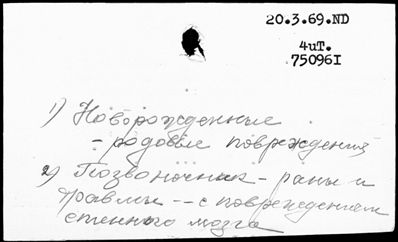 20.3.69.ND
4uT.
75096I
1) Новорожденные
- родовые повреждения
2) Позвоночник - раны и
травмы -- с повреждением
спинного мозга